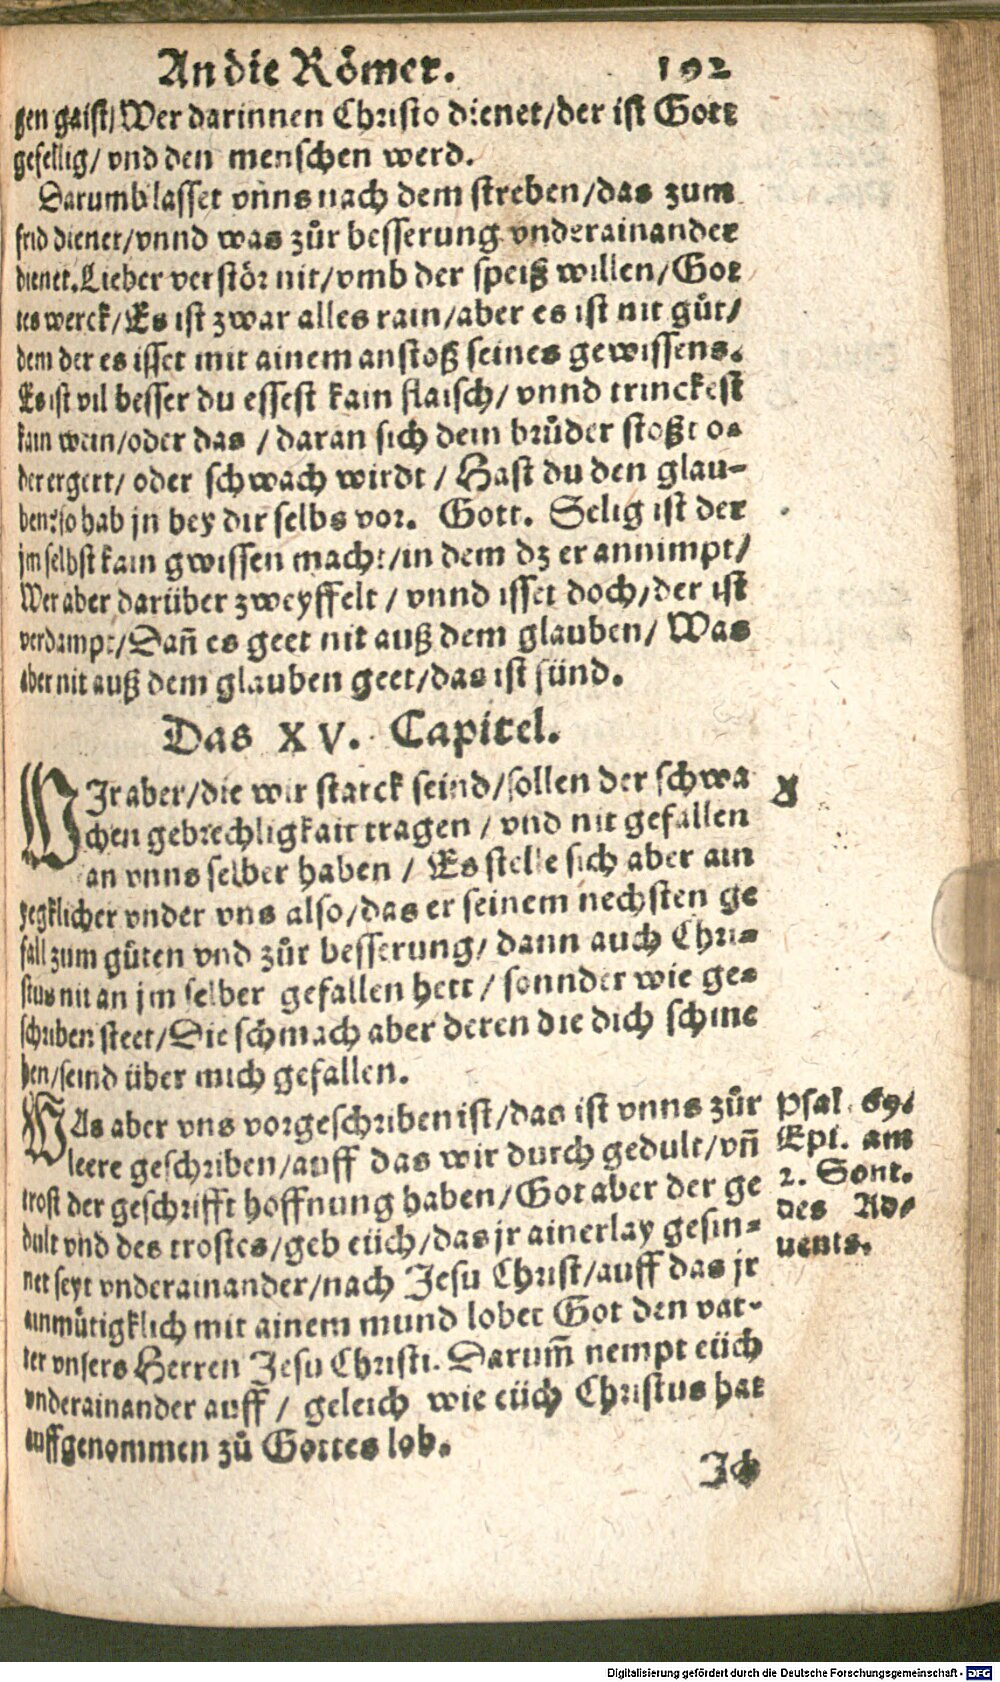 An die Rômer. 192
gen gaist/ Wer darinnen Christo dienet/der ist Gott
gefellig/ vnd den menschen werd.
Darumb lasset vnns nach dem streben/das zum
frid dienet/vnnd was zůr besserung vnderainander
dienet. Lieber verstôr nit/vmb der speiß willen/Got
tes werck/Es ist zwar alles rain/aber es ist nit gůt/
dem der es isset mit ainem anstoß seines gewissens.
Es ist vil besser du essest kain flaisch/ vnnd trinckest
kain wein/oder das / daran sich dein brůder stoßt o-
der ergert/ oder schwach wirdt / Hast du den glau-
ben: so hab jn bey dir selbs vor. Gott. Selig ist der
jm selbst kain gwissen macht/in dem dz er annimpt/
Wer aber darüber zweyffelt / vnnd isset doch/der ist
verdampt/Dañ es geet nit auß dem glauben/ Was
aber nit auß dem glauben geet/das ist sünd.
Das XV. Capitel.
WIr aber/die wir starck seind/sollen der schwa
chen gebrechligkait tragen / vnd nit gefallen
an vnns selber haben / Es stelle sich aber ain
yegklicher vnder vns also/das er seinem nechsten ge
fall zum gůten vnd zůr besserung/ dann auch Chri-
stus nit an jm selber gefallen hett / sonnder wie ge-
schriben steet/Die schmach aber deren die dich schme
hen/seind über mich gefallen.
WAs aber vns vorgeschriben ist/das ist vnns zůr
leere geschriben/auff das wir durch gedult/vñ
trost der geschrifft hoffnung haben/Got aber der ge
dult vnd des trostes/geb eüch/das jr ainerlay gesin-
net seyt vnderainander/nach Jesu Christ/auff das jr
ainmůtigklich mit ainem mund lobet Got den vat-
ter vnsers Herren Jesu Christi. Darum̃ nempt eüch
vnderainander auff / geleich wie eüch Christus hat
auffgenommen zů Gottes lob.
Ich
A
Psal. 69.
Epi. am
2. Sont.
des Ad-
uents.
Digitalisierung gefördert durch die Deutsche Forschungsgemeinschaft - DFG